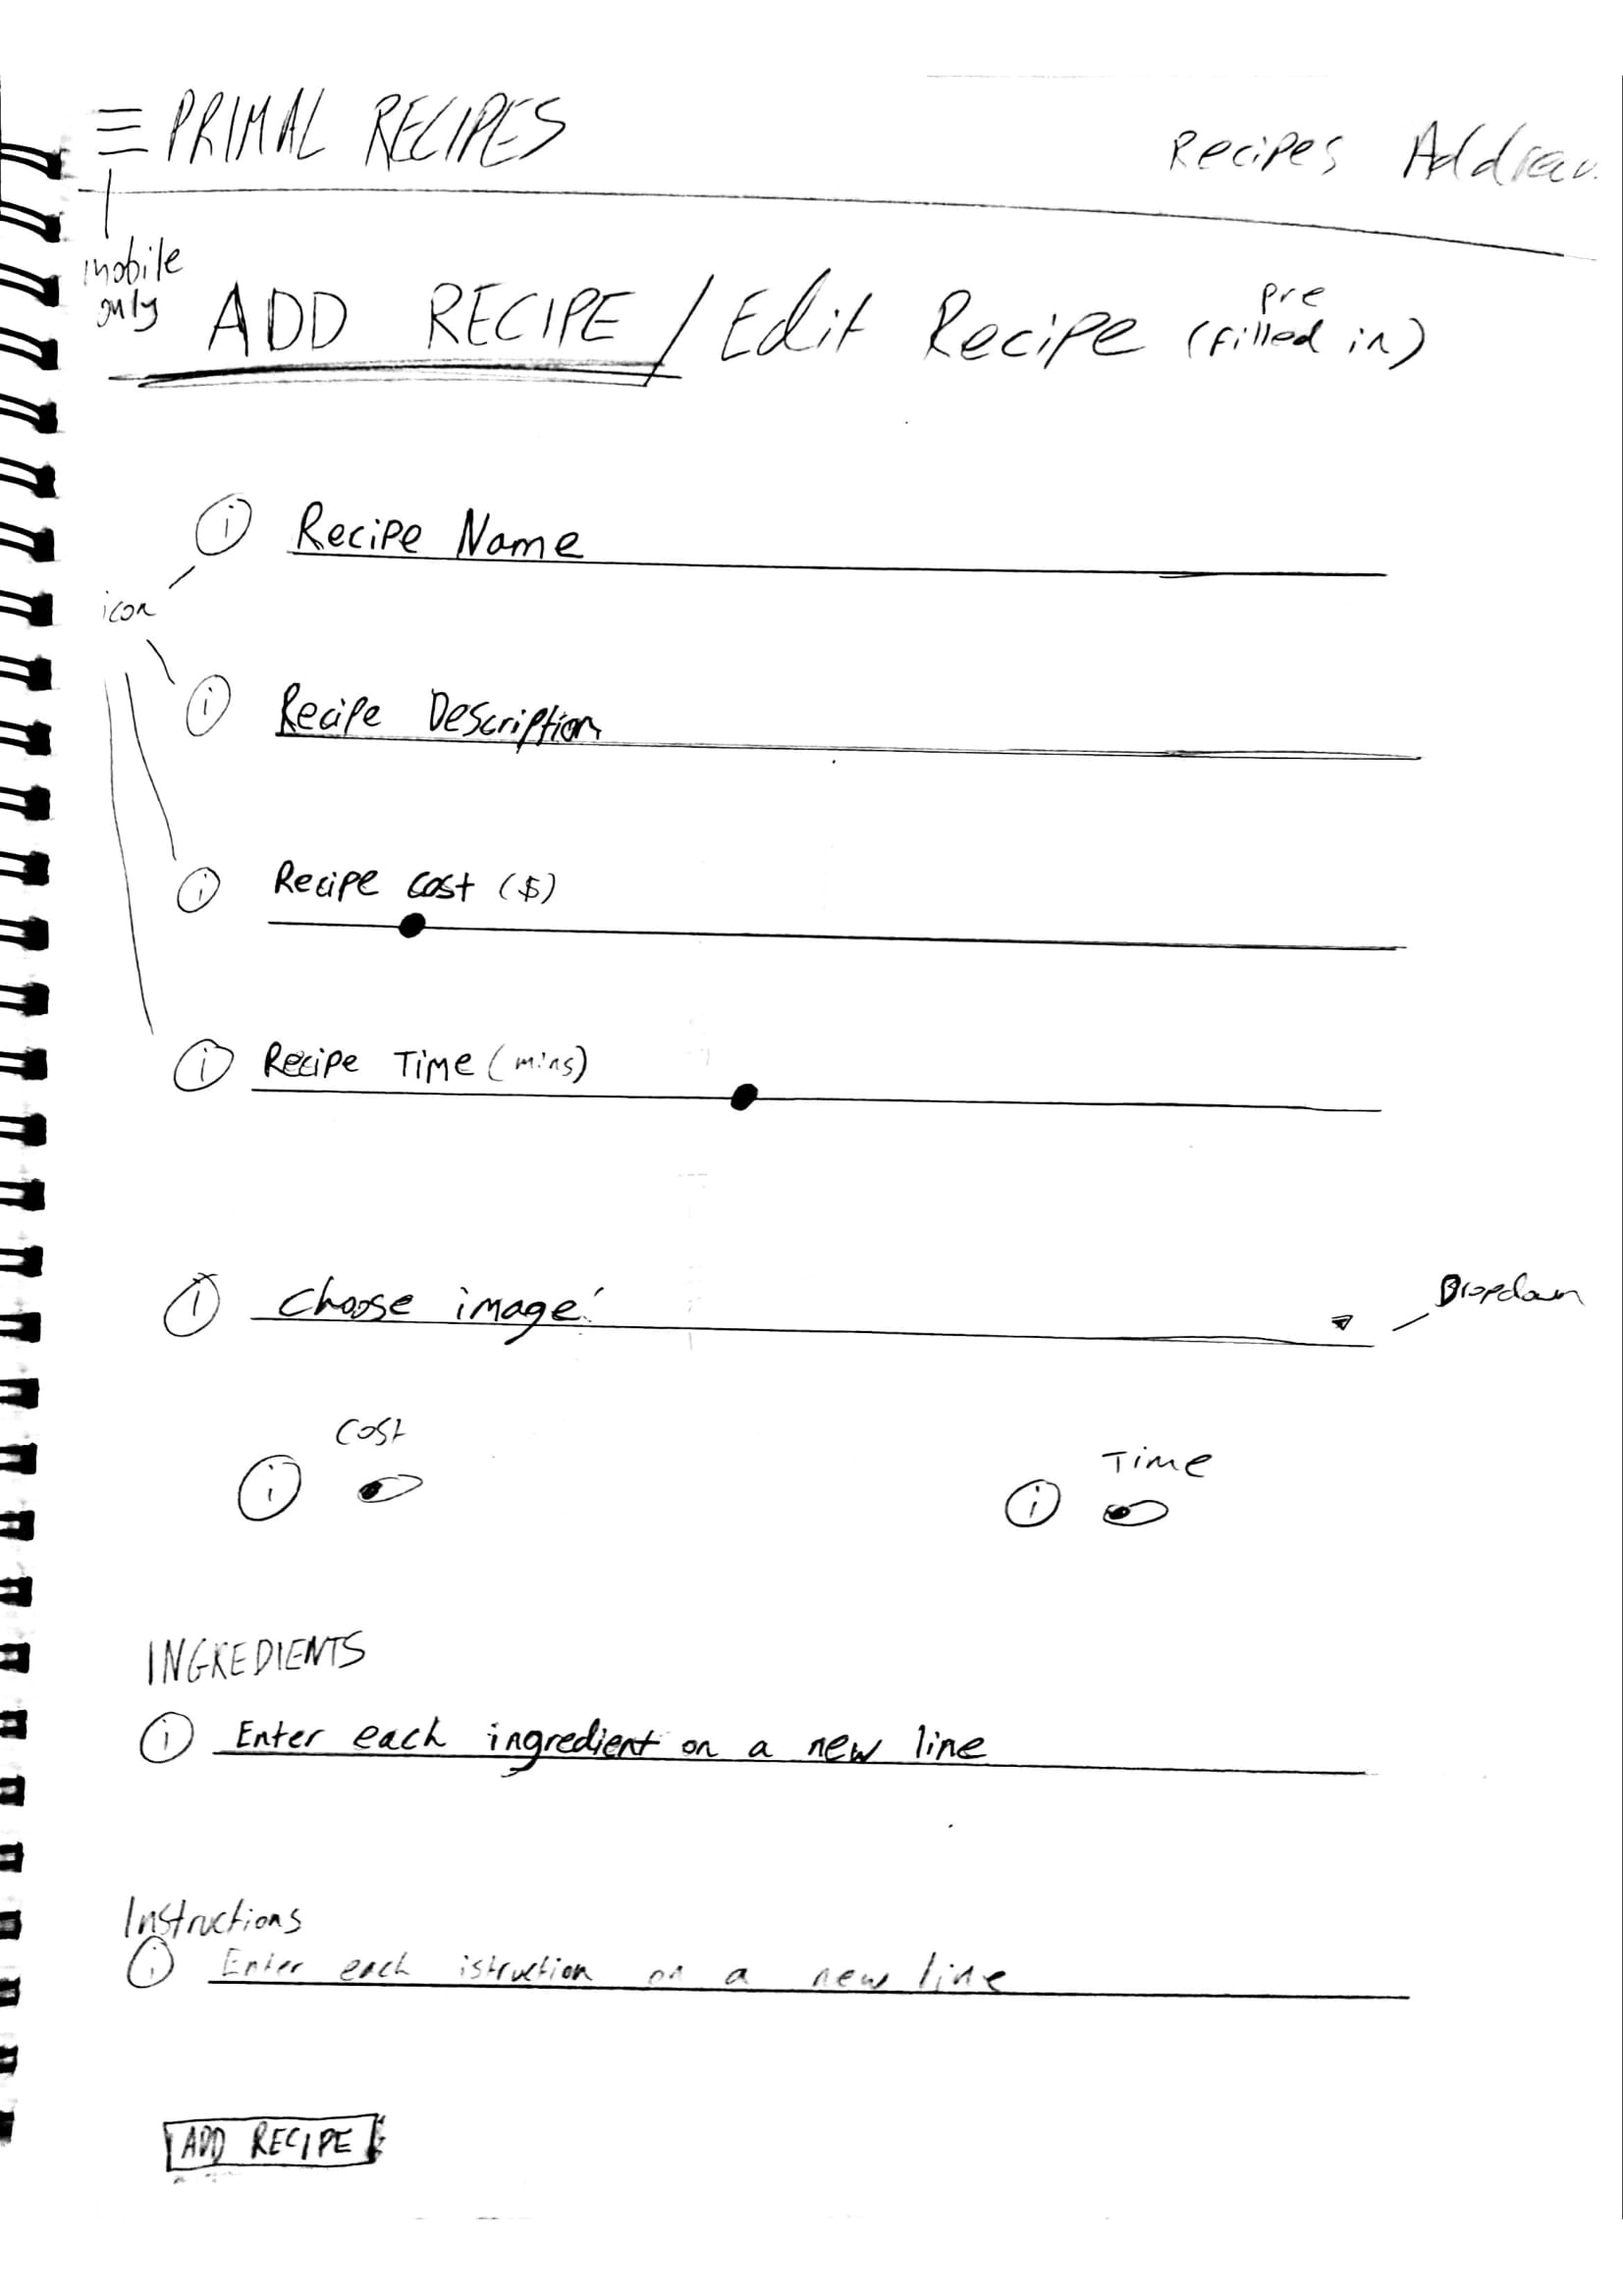 PRIMAL RECIPES
Recipes
mobile
only
ADD RECIPE / Edit Recipe (pre filled in)
i Recipe Name
icon
i Recipe Description
i Recipe cost ($)
i Recipe Time (mins)
i Choose image:
Dropdown
Cost
i
Time
i
INGREDIENTS
i Enter each ingredient on a new line
Instructions
i Enter each istruction on a new line
ADD RECIPE